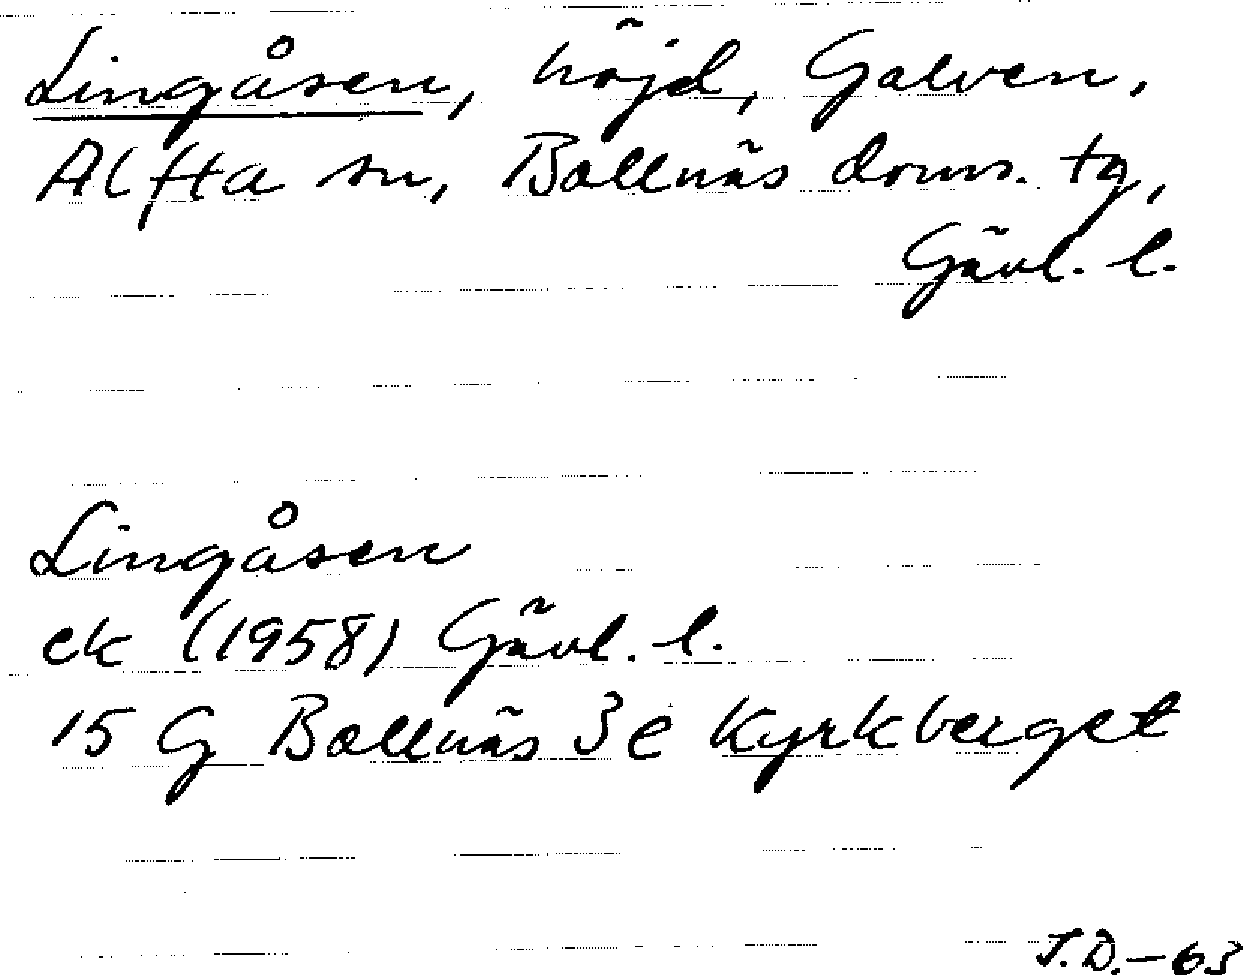 Lingåsen, höjd, Galven,
Alfta sn, Bollnäs doms. tg,
Gävl. l.
Lingåsen
ek (1958) Gävl. l.
15 G Bollnäs 3 e Kyrkberget
J.D.-63